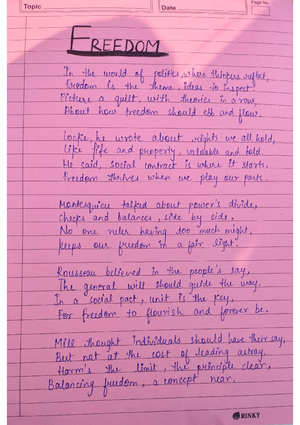 Topic
Date
Page No.
FREEDOM
In the world of politics, where thinkers reflect,
Freedom is the theme, ideas to inspect
Picture a quilt, with theories in a row,
About how freedom should ebb and flow.
Locke, he wrote about rights we all hold,
Like life and property, valuable and bold.
He said, social contract is where it starts,
Freedom thrives when we play our parts.
Montesquieu talked about power's divide,
Checks and balances, side by side.
No one ruler having too much might,
Keeps our freedom in a fair light.
Rousseau believed in the people's say,
The general will should guide the way.
In a social pact, unit is the key,
For freedom to flourish and forever be.
Mill thought individuals should have their say,
But not at the cost of leading astray.
Harm's the limit, the principle clear,
Balancing freedom, a concept near.
RINKY